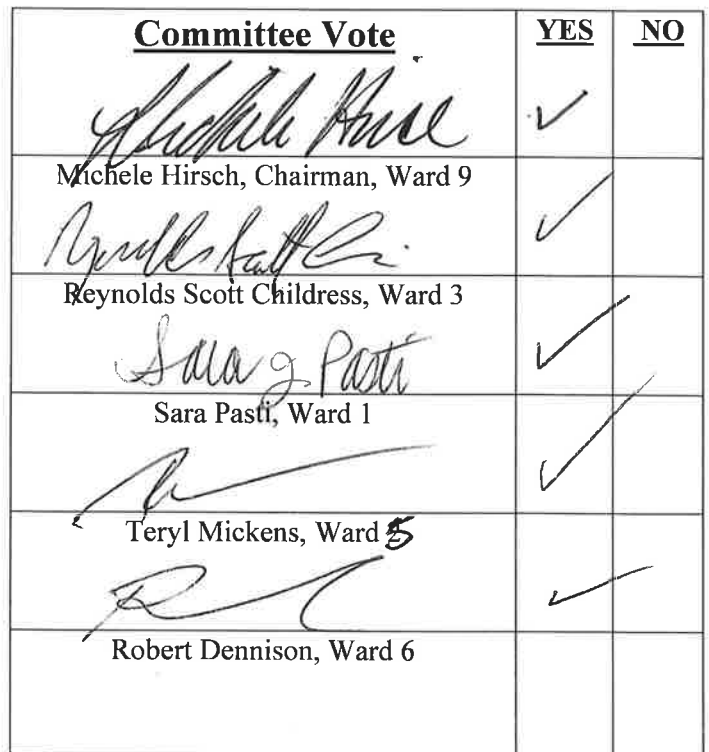 Committee Vote YES NO
Michele Hirsch, Chairman, Ward 9
Reynolds Scott Childress, Ward 3
Sara J Pasti
Sara Pasti, Ward 1
Teryl Mickens, Ward 5
Robert Dennison, Ward 6